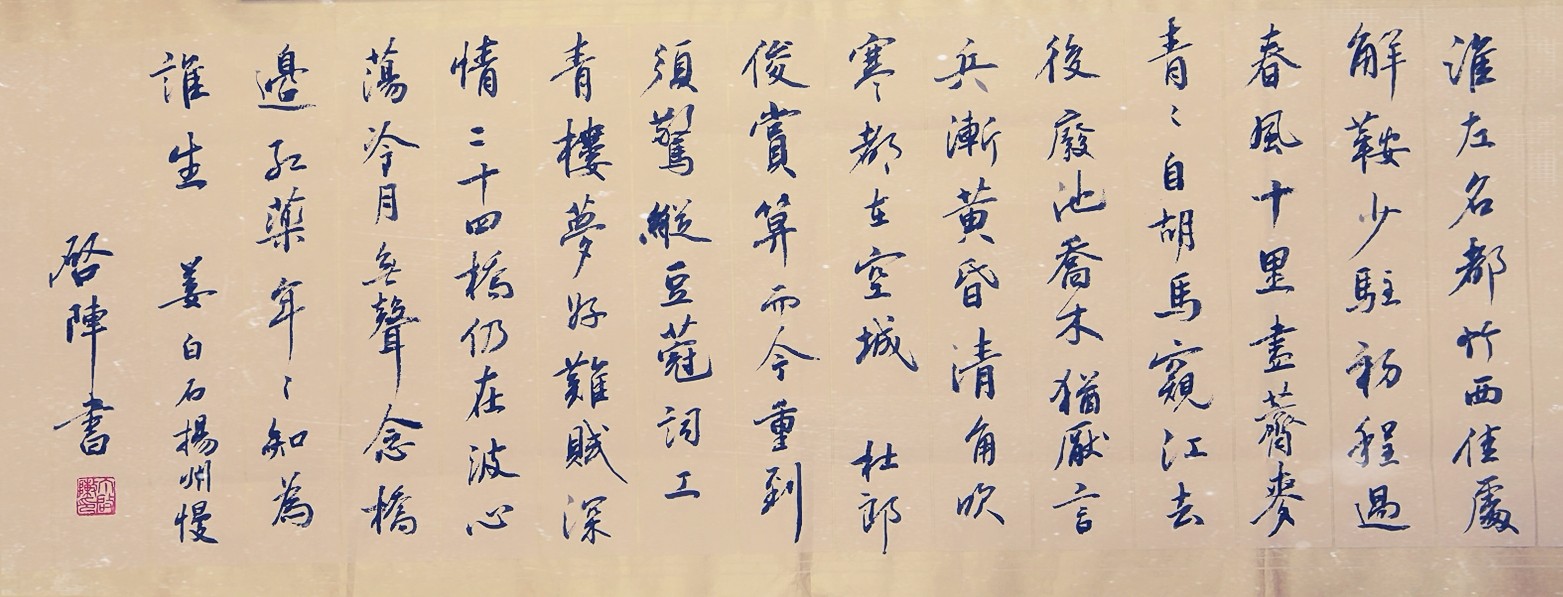 淮左名都竹西佳處
解鞍少駐初程過
春風十里盡薺麥
青〻自胡馬窺江去
後廢池喬木猶厭言
兵漸黃昏清角吹
寒都在空城 杜郎
俊賞算而今重到
須驚縱豆蔻詞工
青樓夢好難賦深
情二十四橋仍在波心
蕩冷月無聲念橋
邊紅藥年〻知為
誰生 姜白石揚州慢
啓陣書